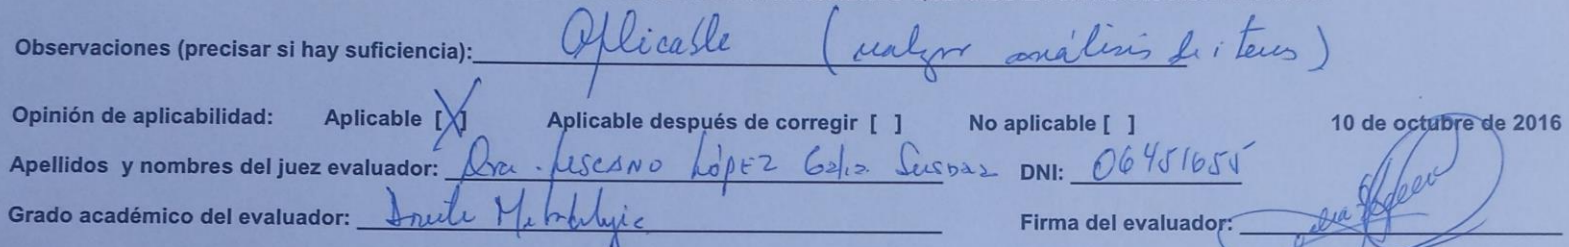 Observaciones (precisar si hay suficiencia): Aplicable ( análisis de items )
Opinión de aplicabilidad: Aplicable [X] Aplicable después de corregir [ ] No aplicable [ ] 10 de octubre de 2016
Apellidos y nombres del juez evaluador: Dra. Lescano López Galia Susana DNI: 06451655
Grado académico del evaluador: Firma del evaluador: